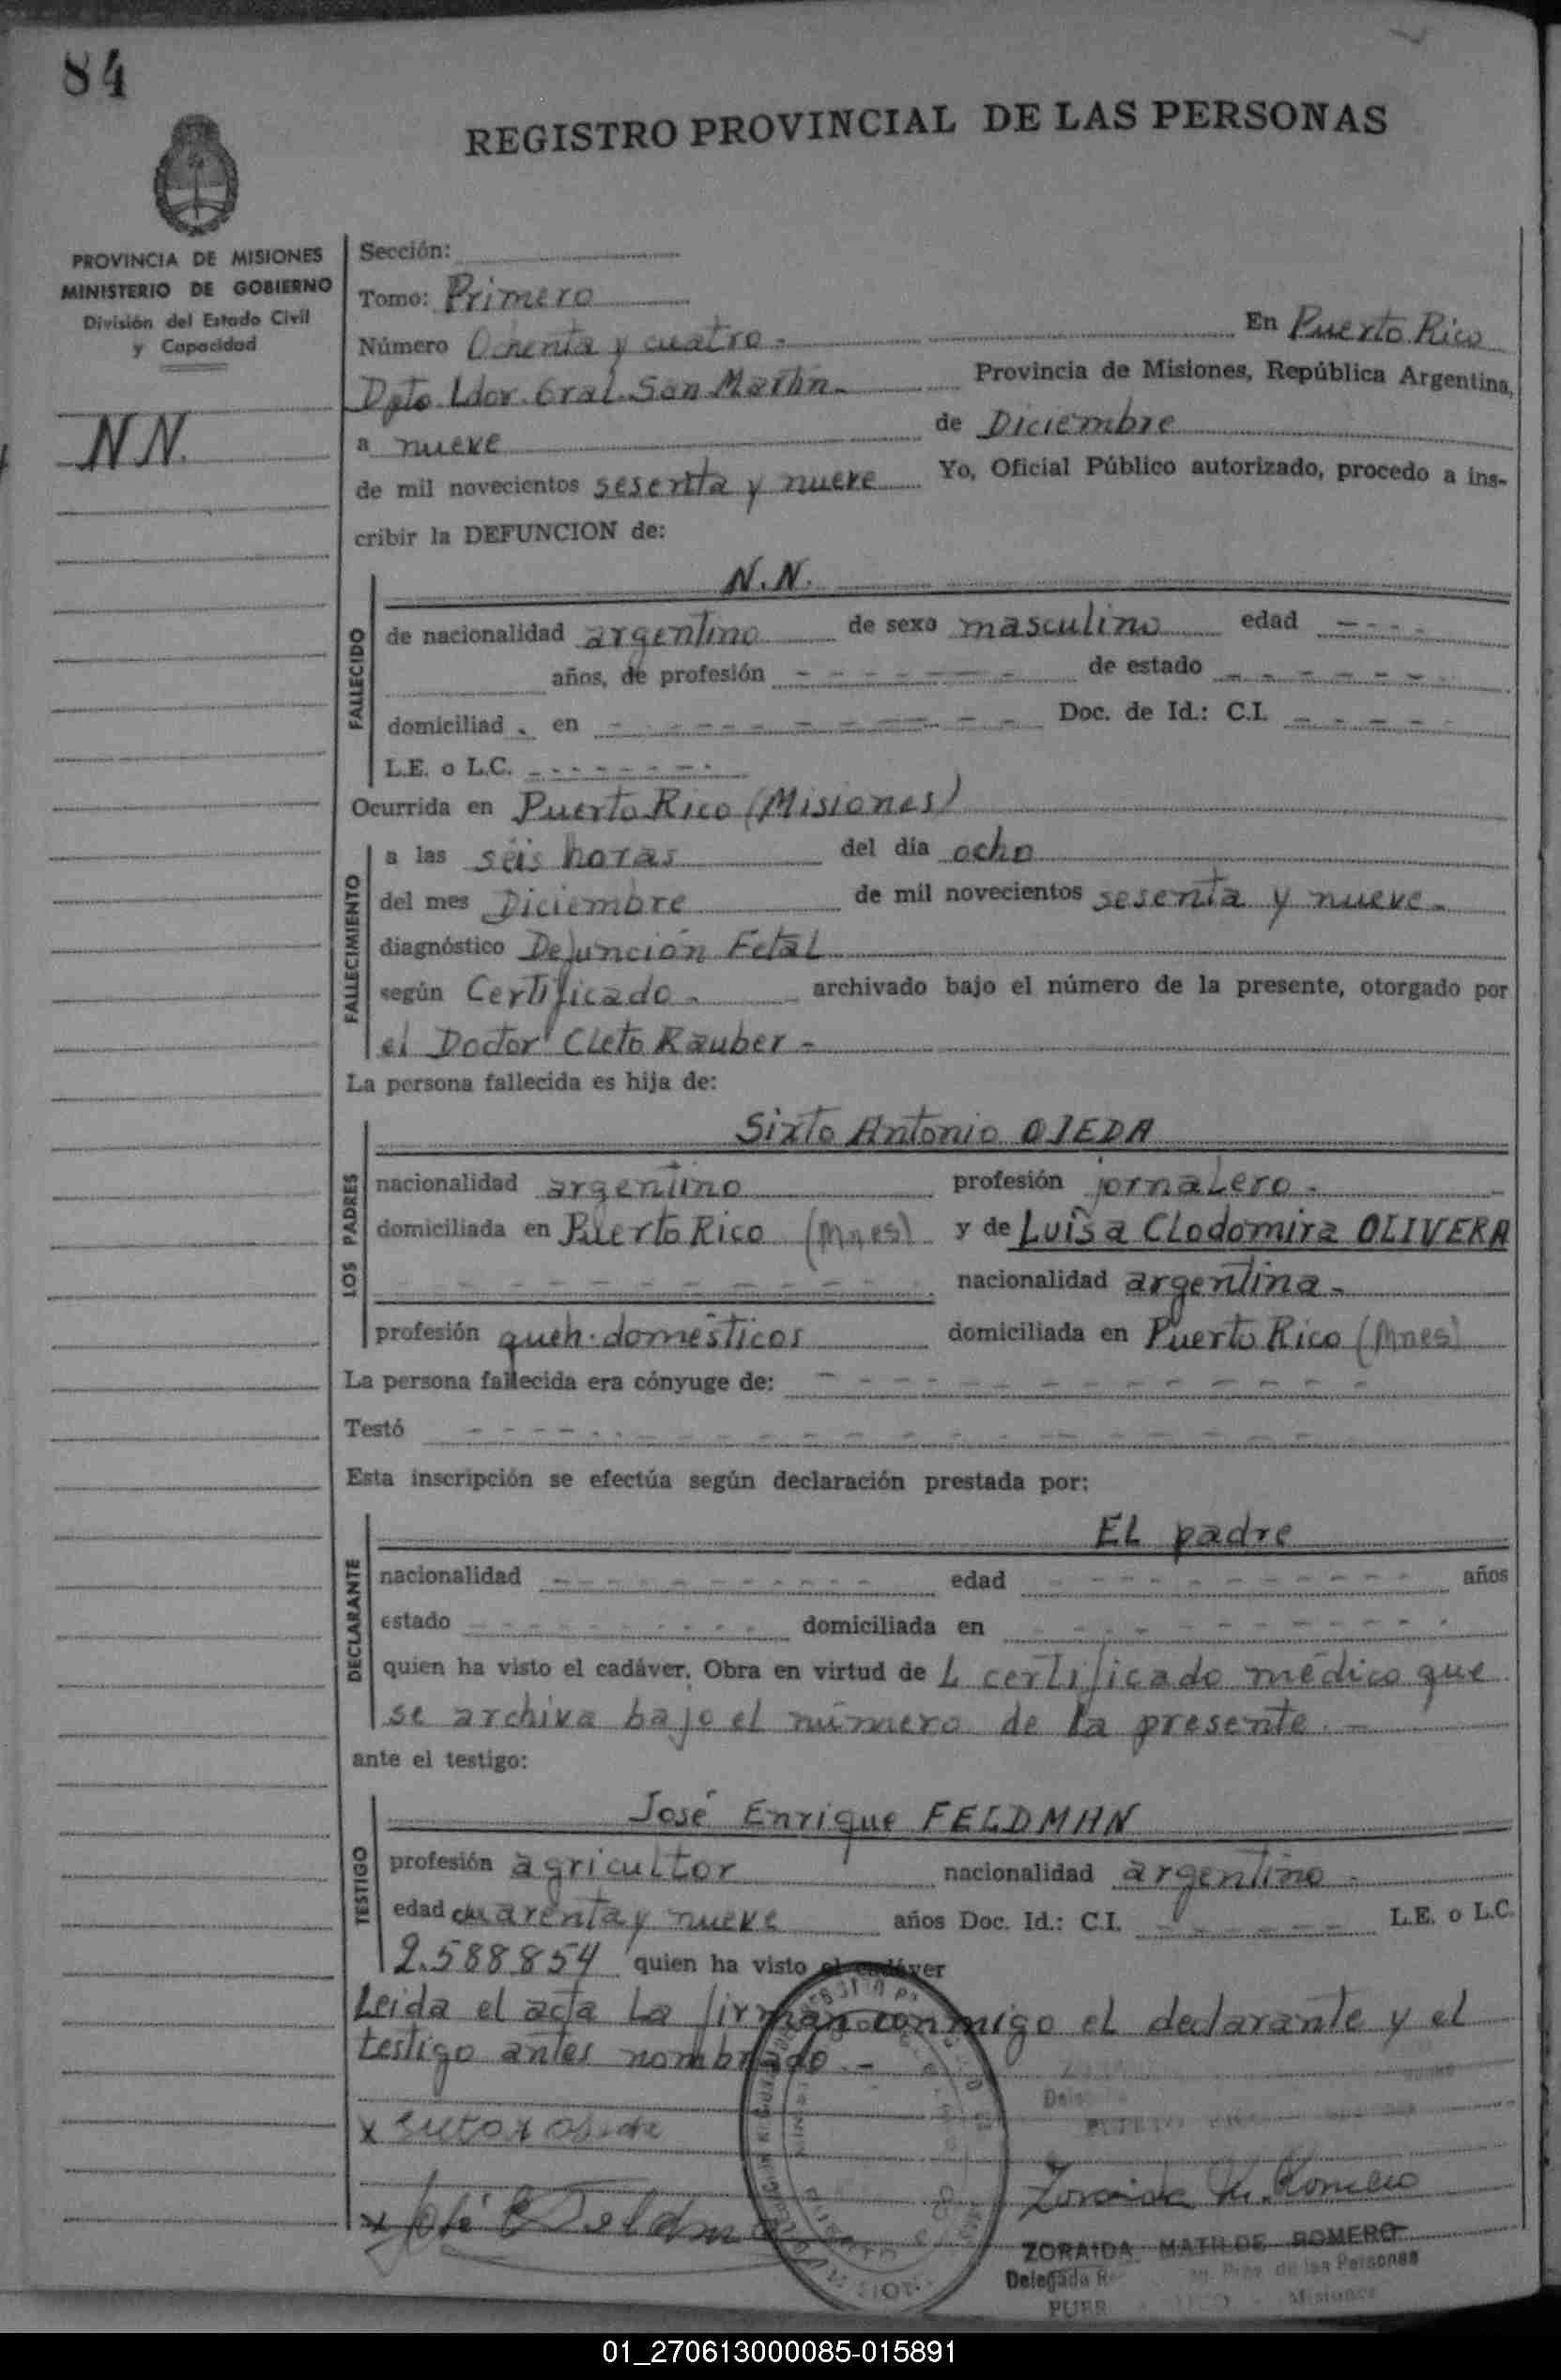 84
REGISTRO PROVINCIAL DE LAS PERSONAS
PROVINCIA DE MISIONES
MINISTERIO DE GOBIERNO
División del Estado Civil
y Capacidad
N N.
Sección:
Tomo: Primero
Número Ochenta y cuatro. En Puerto Rico
Dpto Ldor. Gral. San Martín. Provincia de Misiones, República Argentina,
a nueve de Diciembre
de mil novecientos sesenta y nueve Yo, Oficial Público autorizado, procedo a ins-
cribir la DEFUNCION de:
N.N.
FALLECIDO
de nacionalidad argentino de sexo masculino edad - - - -
años, de profesión - - - - - - de estado - - - - - -
domiciliad . en - - - - - - - - - - Doc. de Id.: C.I. - - - - -
L.E. o L.C. - - - - - - - -
Ocurrida en Puerto Rico (Misiones)
FALLECIMIENTO
a las seis horas del día ocho
del mes Diciembre de mil novecientos sesenta y nueve.
diagnóstico Defunción Fetal
según Certificado. archivado bajo el número de la presente, otorgado por
el Doctor Cleto Rauber -
La persona fallecida es hija de:
LOS PADRES
Sixto Antonio OJEDA
nacionalidad argentino profesión jornalero.
domiciliada en Puerto Rico (Mnes) y de Luisa Clodomira OLIVERA
- - - - - - - - - - nacionalidad argentina.
profesión queh. domésticos domiciliada en Puerto Rico (Mnes)
La persona fallecida era cónyuge de: - - - - - - - - - - - -
Testó - - - - - - - - - - - - - - - - - - - -
Esta inscripción se efectúa según declaración prestada por:
DECLARANTE
EL padre
nacionalidad - - - - - - - - - - - edad - - - - - - - - - - - años
estado - - - - - - - - - domiciliada en - - - - - - - - - -
quien ha visto el cadáver. Obra en virtud de L certificado médico que
se archiva bajo el número de la presente. -
ante el testigo:
TESTIGO
José Enrique FELDMAN
profesión agricultor nacionalidad argentino.
edad cuarenta y nueve años Doc. Id.: C.I. - - - - - - L.E. o L.C.
2.588.854 quien ha visto el cadáver
Leida el acta la firman conmigo el declarante y el
testigo antes nombrado. -
x
x José E Feldman
Zoraida M. Romero
ZORAIDA MATILDE ROMERO
Delegada de las Personas
Misiones
01_270613000085-015891